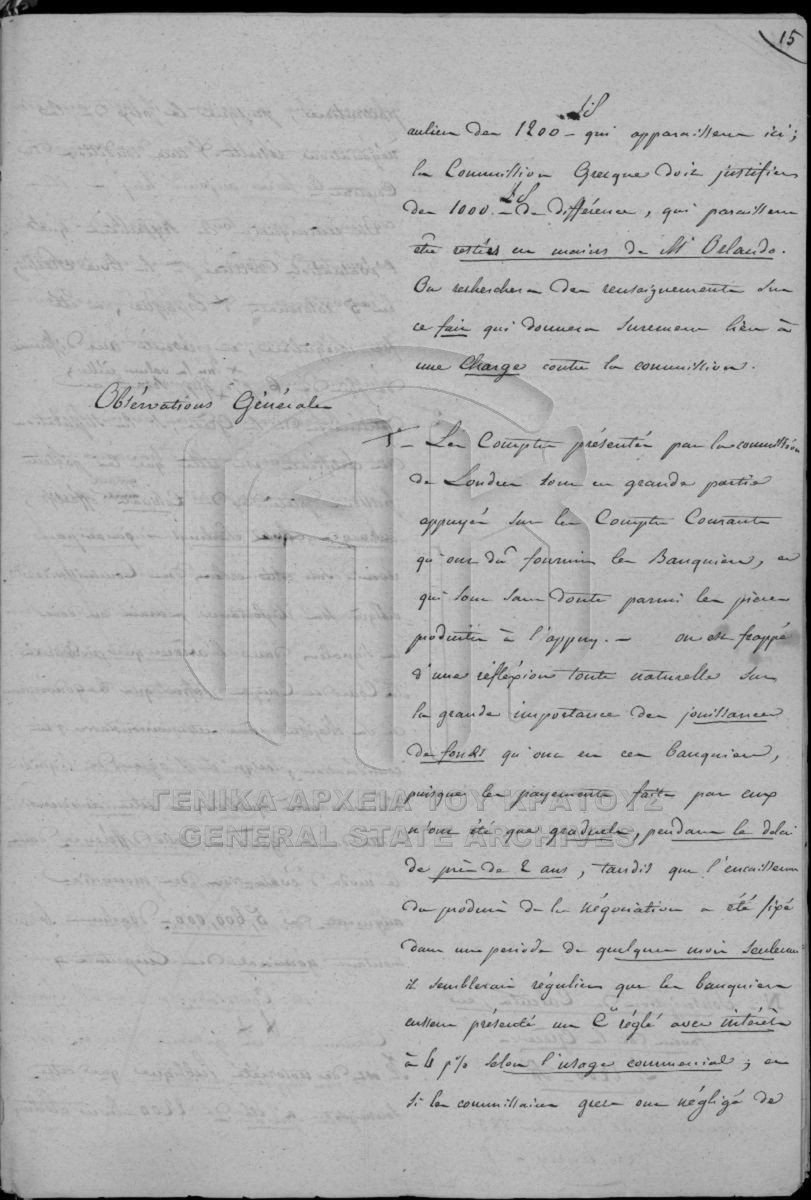 15
aulieu des 1200 - £S qui apparaissent ici;
la Commission Grecque doit justifier
des 1000 - £S de différence, qui paraissent
être restés en mains de Mr Orlando.
On recherchera des renseignements sur
ce fait qui donnera surement lieu à
une Charge contre la commission.
Obsérvations Générales
1° - Les Comptes présentés par la commission
de Londres sont en grande partie
appuyés sur les Comptes Courants
qu'ont dû fournir les Banquiers, et
qui sont sans doute parmi les pièces
produites à l'appuy. - on est frappé
d'une réfléxion toute naturelle sur
la grande importance des jouissances
de fonds qu'ont eu ces banquiers,
puisque les payements faits par eux
n'ont été que graduels, pendant le delai
de près de 2 ans, tandis que l'encaissement
du produit de la négociation a été fixé
dans une periode de quelques mois seulement
il semblerait régulier que les banquiers
eussent présenté un Cte réglé avec intérêts
à 4 p% selon l'usage commercial; et
si les commissaires grecs ont négligé de
ΓΕΝΙΚΑ ΑΡΧΕΙΑ ΤΟΥ ΚΡΑΤΟΥΣ
GENERAL STATE ARCHIVES